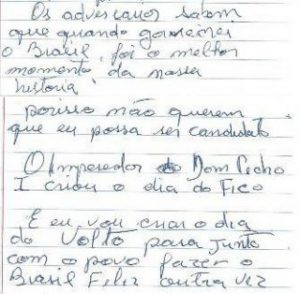 Os adversarios sabem
que quando governei
o Brasil, foi o melhor
momento da nossa
historia
porisso não querem
que eu possa ser candidato
O Imperador Dom Pedro
I criou o dia do Fico
E eu vou criar o dia
do Volto para junto
com o povo fazer o
Brasil Feliz outra vez